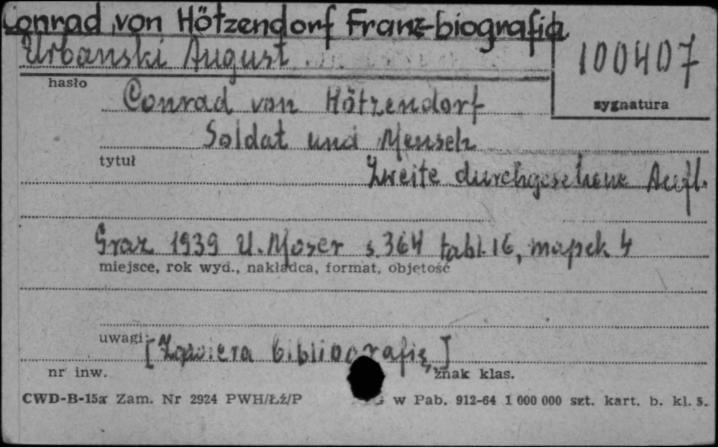 Conrad von Hötzendorf Franz-biografia
Urbanski August
100407
hasło
sygnatura
Conrad von Hötzendorf
Soldat und Mensch
tytuł
Zweite durchgesehene Aufl.
Graz 1939 U. Moser s. 364 tabl. 16, mapek 4
miejsce, rok wyd., nakładca, format, objętość
uwagi:
[Zawiera bibliografię]
nr inw.
znak klas.
CWD-B-15a Zam. Nr 2924 PWH/Łź/P w Pab. 912-64 1 000 000 szt. kart. b. kl. 5.